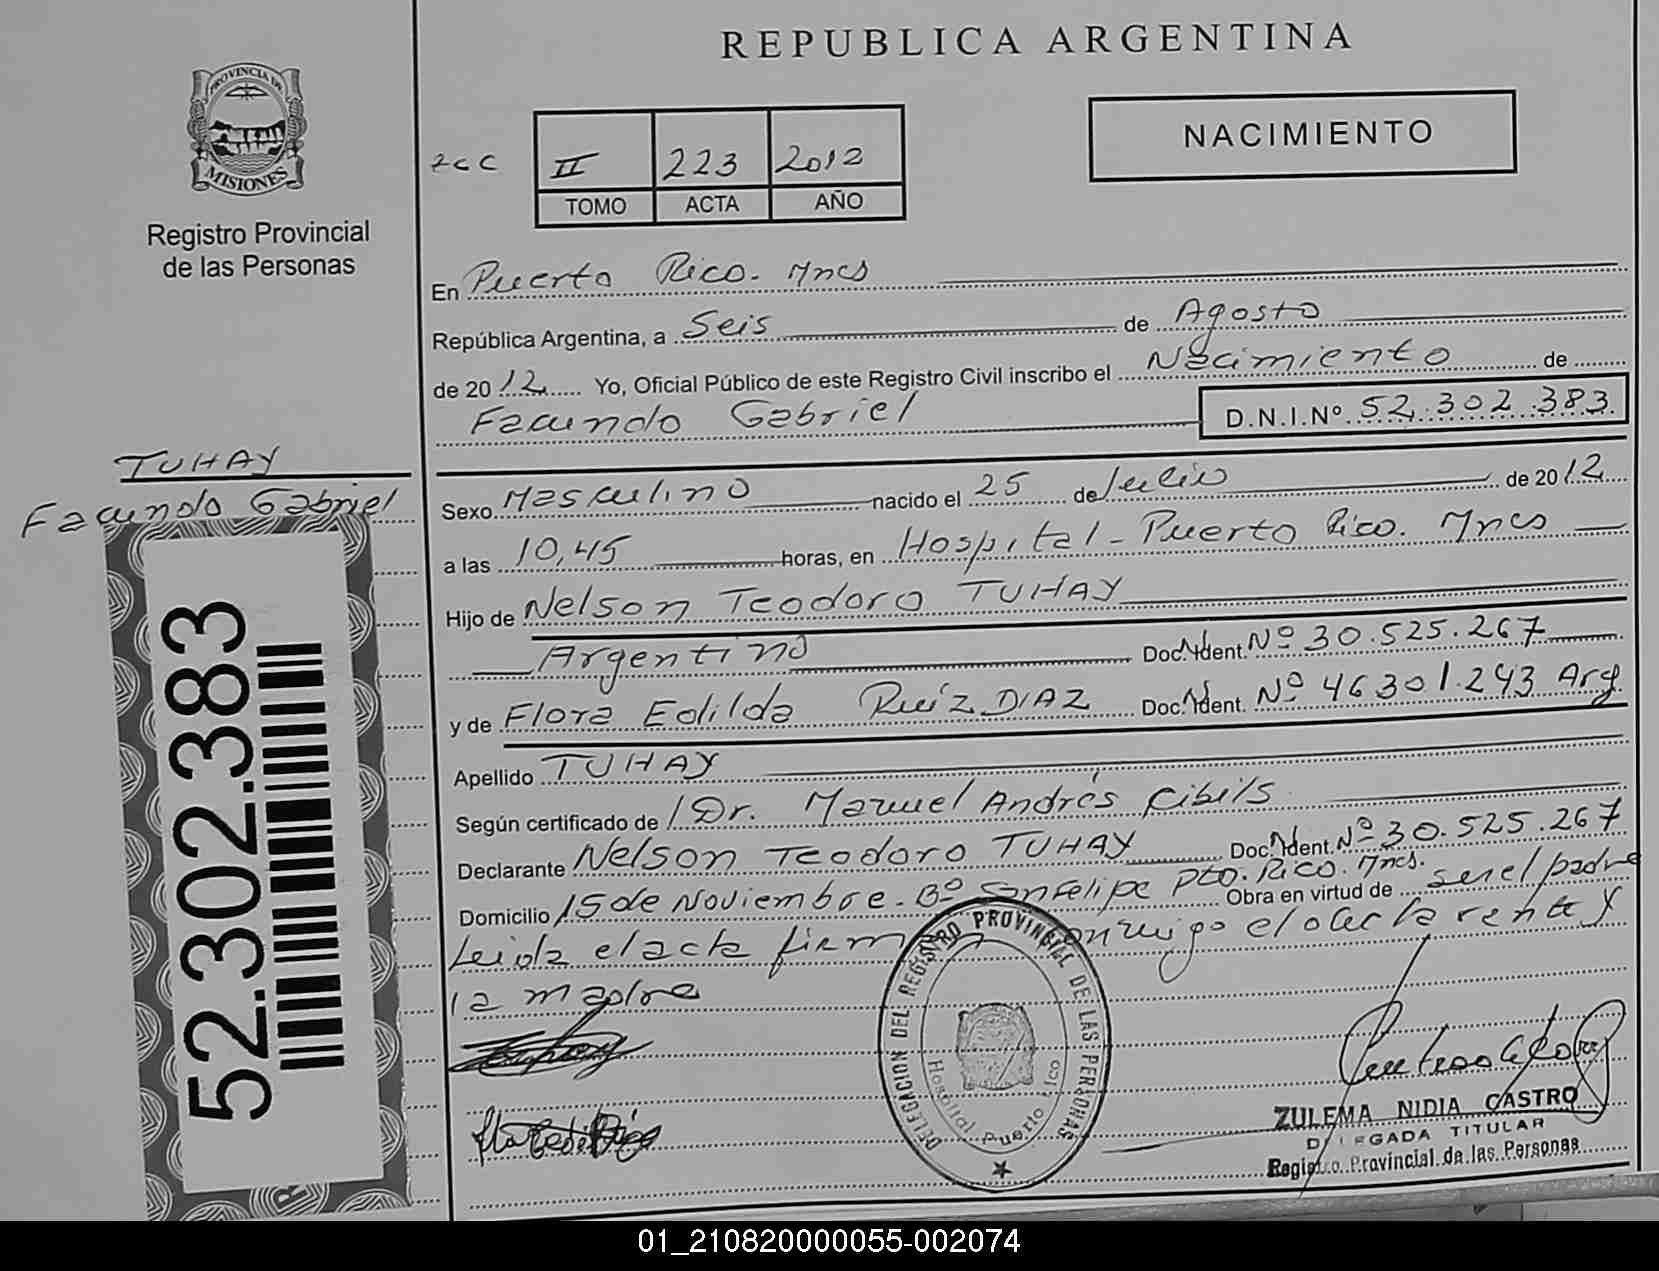 REPUBLICA ARGENTINA
PROVINCIA DE
MISIONES
Registro Provincial
de las Personas
NACIMIENTO
II 223 2012
TOMO ACTA AÑO
En Puerto Rico. Mnes
República Argentina, a Seis de Agosto
de 2012 Yo, Oficial Público de este Registro Civil inscribo el Nacimiento de
Facundo Gabriel D.N.I.Nº 52.302.383
TUHAY
Facundo Gabriel
52.302.383
Sexo Masculino nacido el 25 de Julio de 2012
a las 10,45 horas, en Hospital - Puerto Rico. Mnes
Hijo de Nelson Teodoro TUHAY
Argentino Doc. Ident. Nº 30.525.267
y de Flora Edilda Ruíz DIAZ Doc. Ident. Nº 46301.243 Arg.
Apellido TUHAY
Según certificado de Dr. Manuel Andrés Ribils
Declarante Nelson Teodoro TUHAY Doc. Ident. Nº 30.525.267
Domicilio 15 de Noviembre. Bº San Felipe Pto. Rico. Mnes. Obra en virtud de ser el padre
Leida el acta conmigo el declarente y
la madre
DELEGACION DEL REGISTRO PROVINCIAL DE LAS PERSONAS
Hospital Puerto Rico
ZULEMA NIDIA CASTRO
DELEGADA TITULAR
Registro Provincial de las Personas
01_210820000055-002074